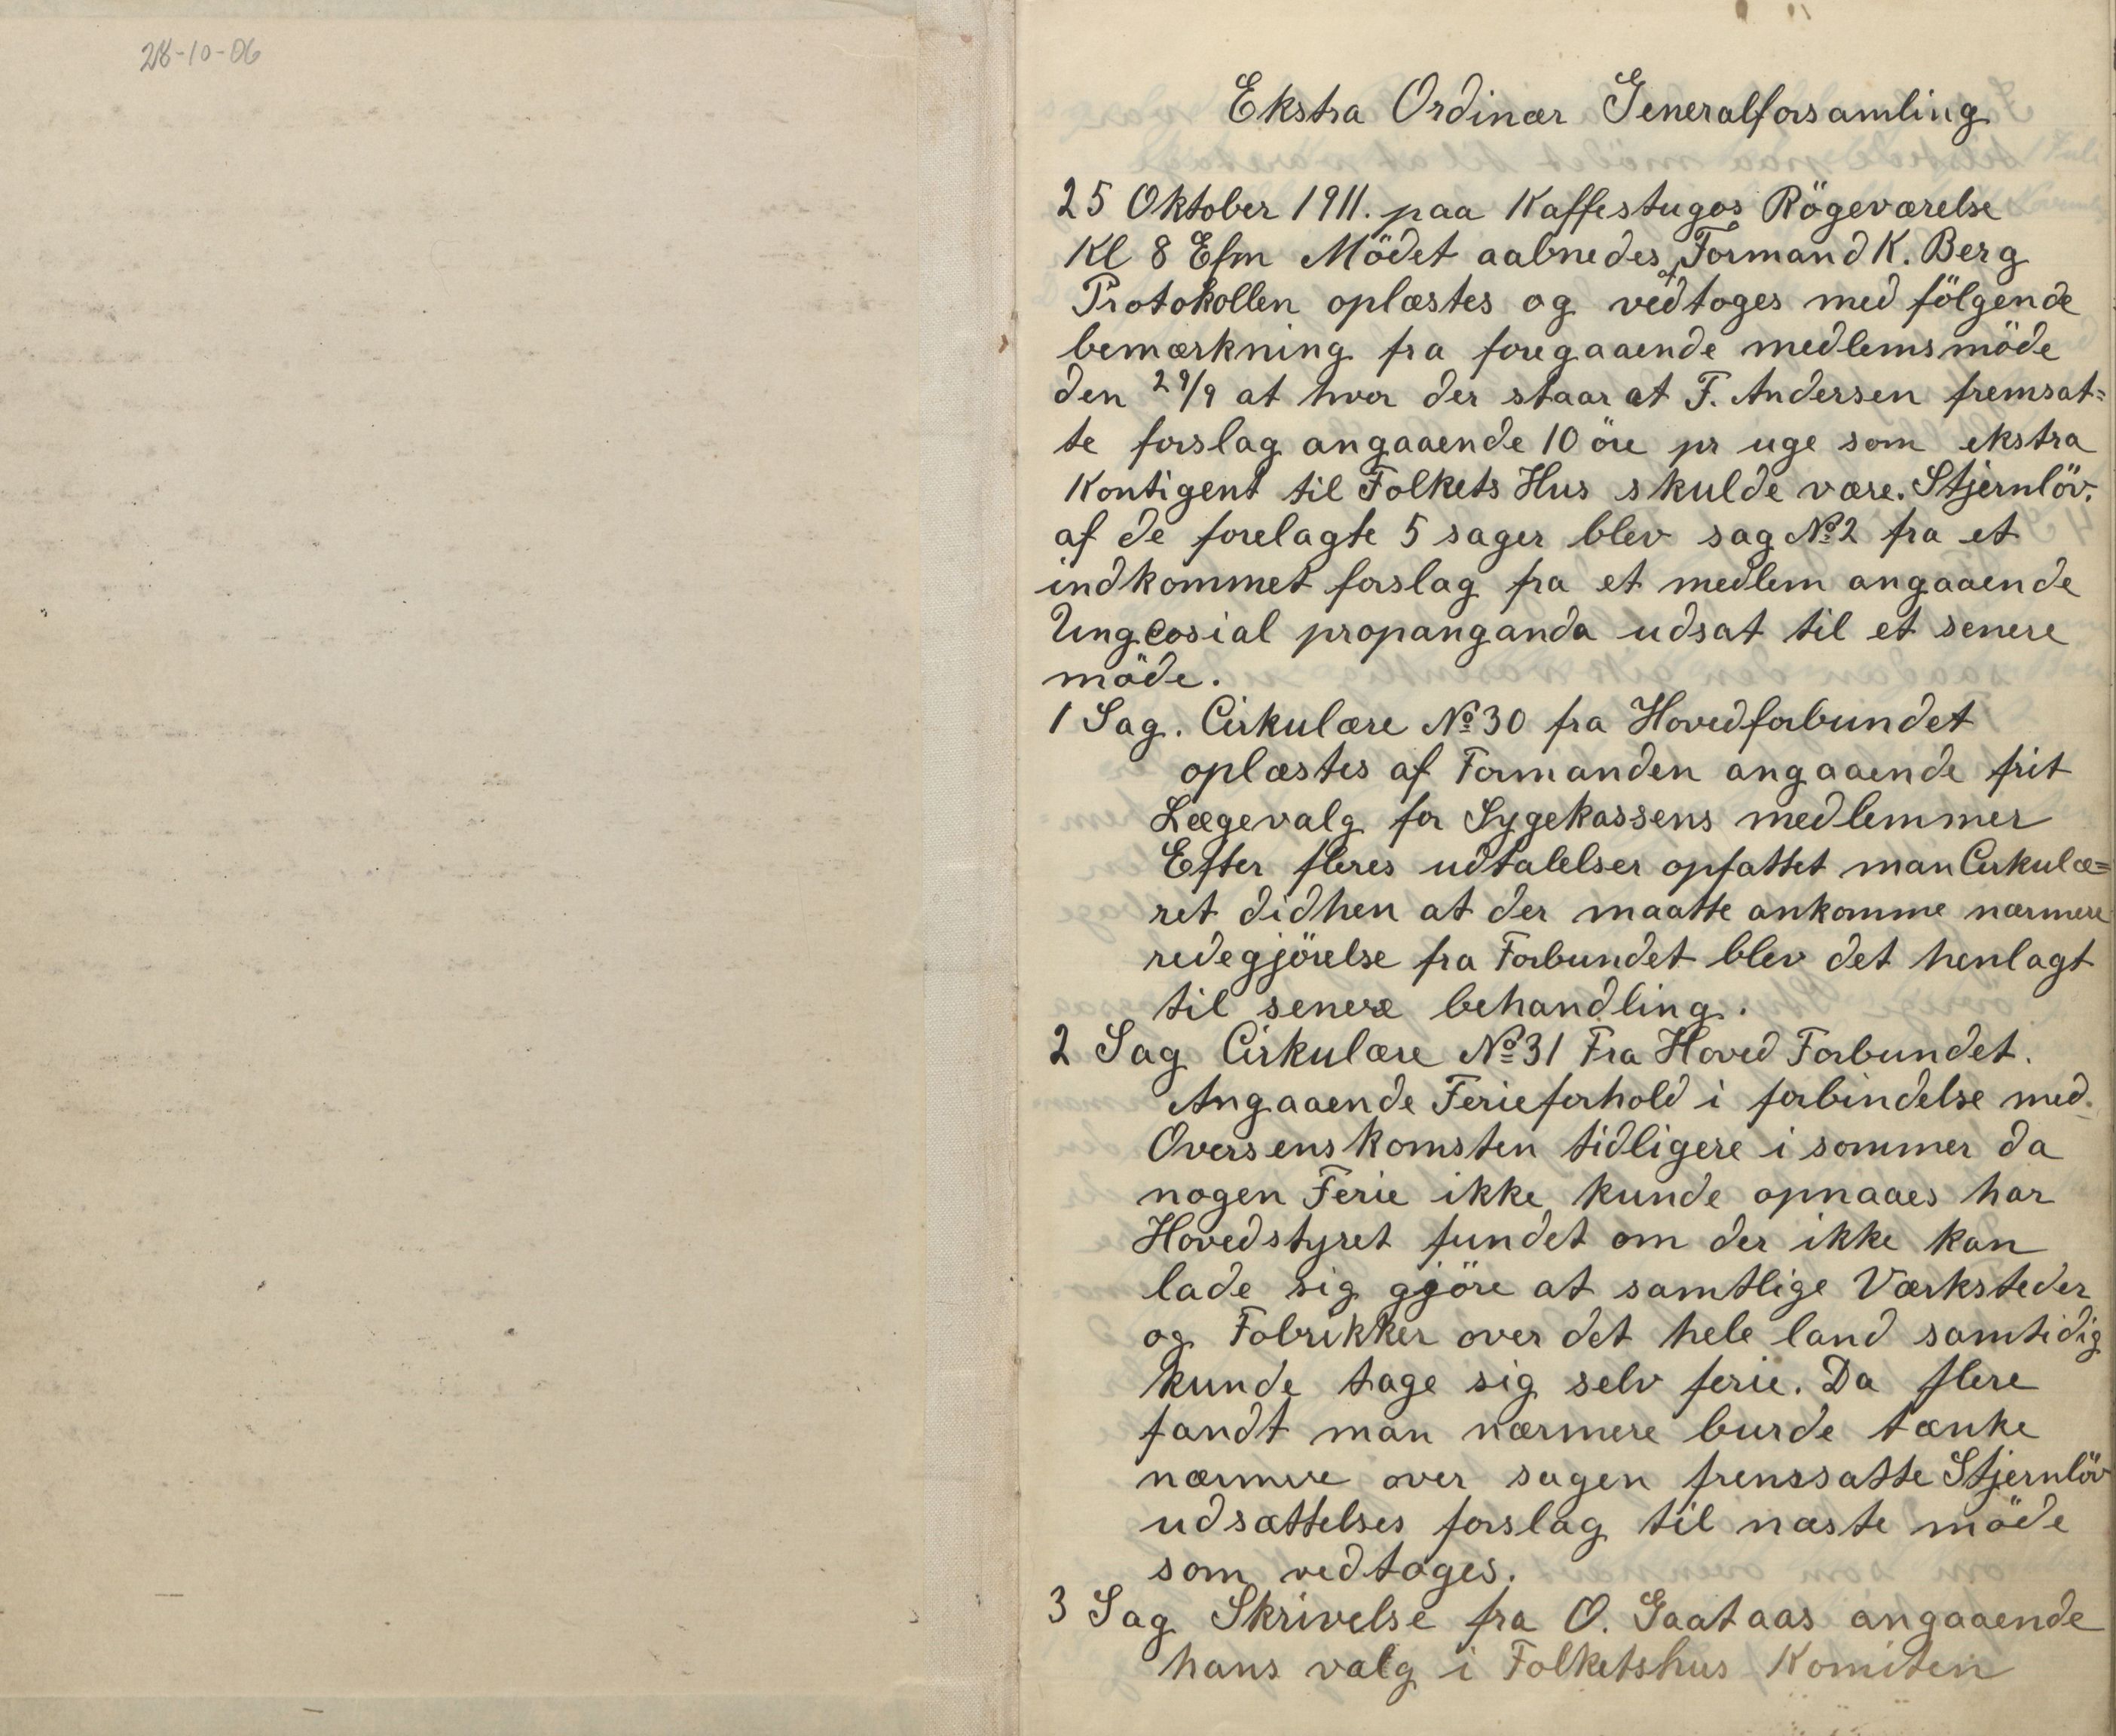 28-10-06
Ekstra Ordinær Generalforsamling
25 Oktober 1911. paa Kaffestugos Rögeværelse
Kl 8 Efm Mödet aabnedes af Formand K. Berg
Protokollen oplæstes og vedtoges med fölgende
bemærkning fra foregaaende medlemsmöde
den 29/9 at hvor der staar at F. Andersen fremsat=
te forslag angaaende 10 öre pr uge som ekstra
Kontigent til Folkets Hus skulde være. Stjernlöv.
af de forelagte 5 sager blev sag № 2 fra et
indkommet forslag fra et medlem angaaende
Ungcosial propanganda udsat til et senere
möde.
1 Sag. Cirkulære № 30 fra Hovedforbundet
oplæstes af Formanden angaaende frit
Lægevalg for Sygekassens medlemmer
Efter fleres udtalelser opfattet man Cirkulæ=
ret didhen at der maatte ankomme nærmere
redegjörelse fra Forbundet blev det henlagt
til senere behandling.
2 Sag Cirkulære № 31 Fra Hoved Forbundet.
Angaaende Ferieforhold i forbindelse med
Oversenskomsten tidligere i sommer da
nogen Ferie ikke kunde opnaaes har
Hovedstyret fundet om der ikke kan
lade sig gjöre at samtlige Værksteder
og Fabrikker over det hele land samtidig
kunde tage sig selv ferie. Da flere
fandt man nærmere burde tænke
nærmere over sagen fremssatte Stjernlöv
udsættelses forslag til næste möde
som vedtoges.
3 Sag Skrivelse fra O. Gaataas angaaende
hans valg i Folketshus Komiten